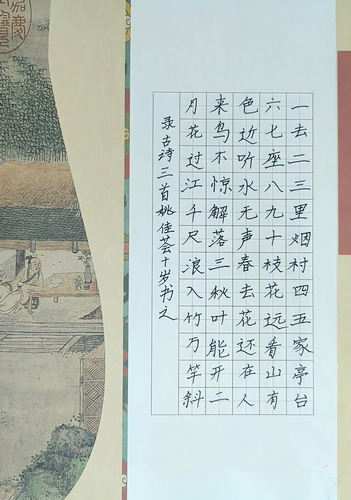 一去二三里烟村四五家亭台
六七座八九十枝花远看山有
色近听水无声春去花还在人
来鸟不惊解落三秋叶能开二
月花过江千尺浪入竹万竿斜
录古诗三首姚佳荟十岁书之